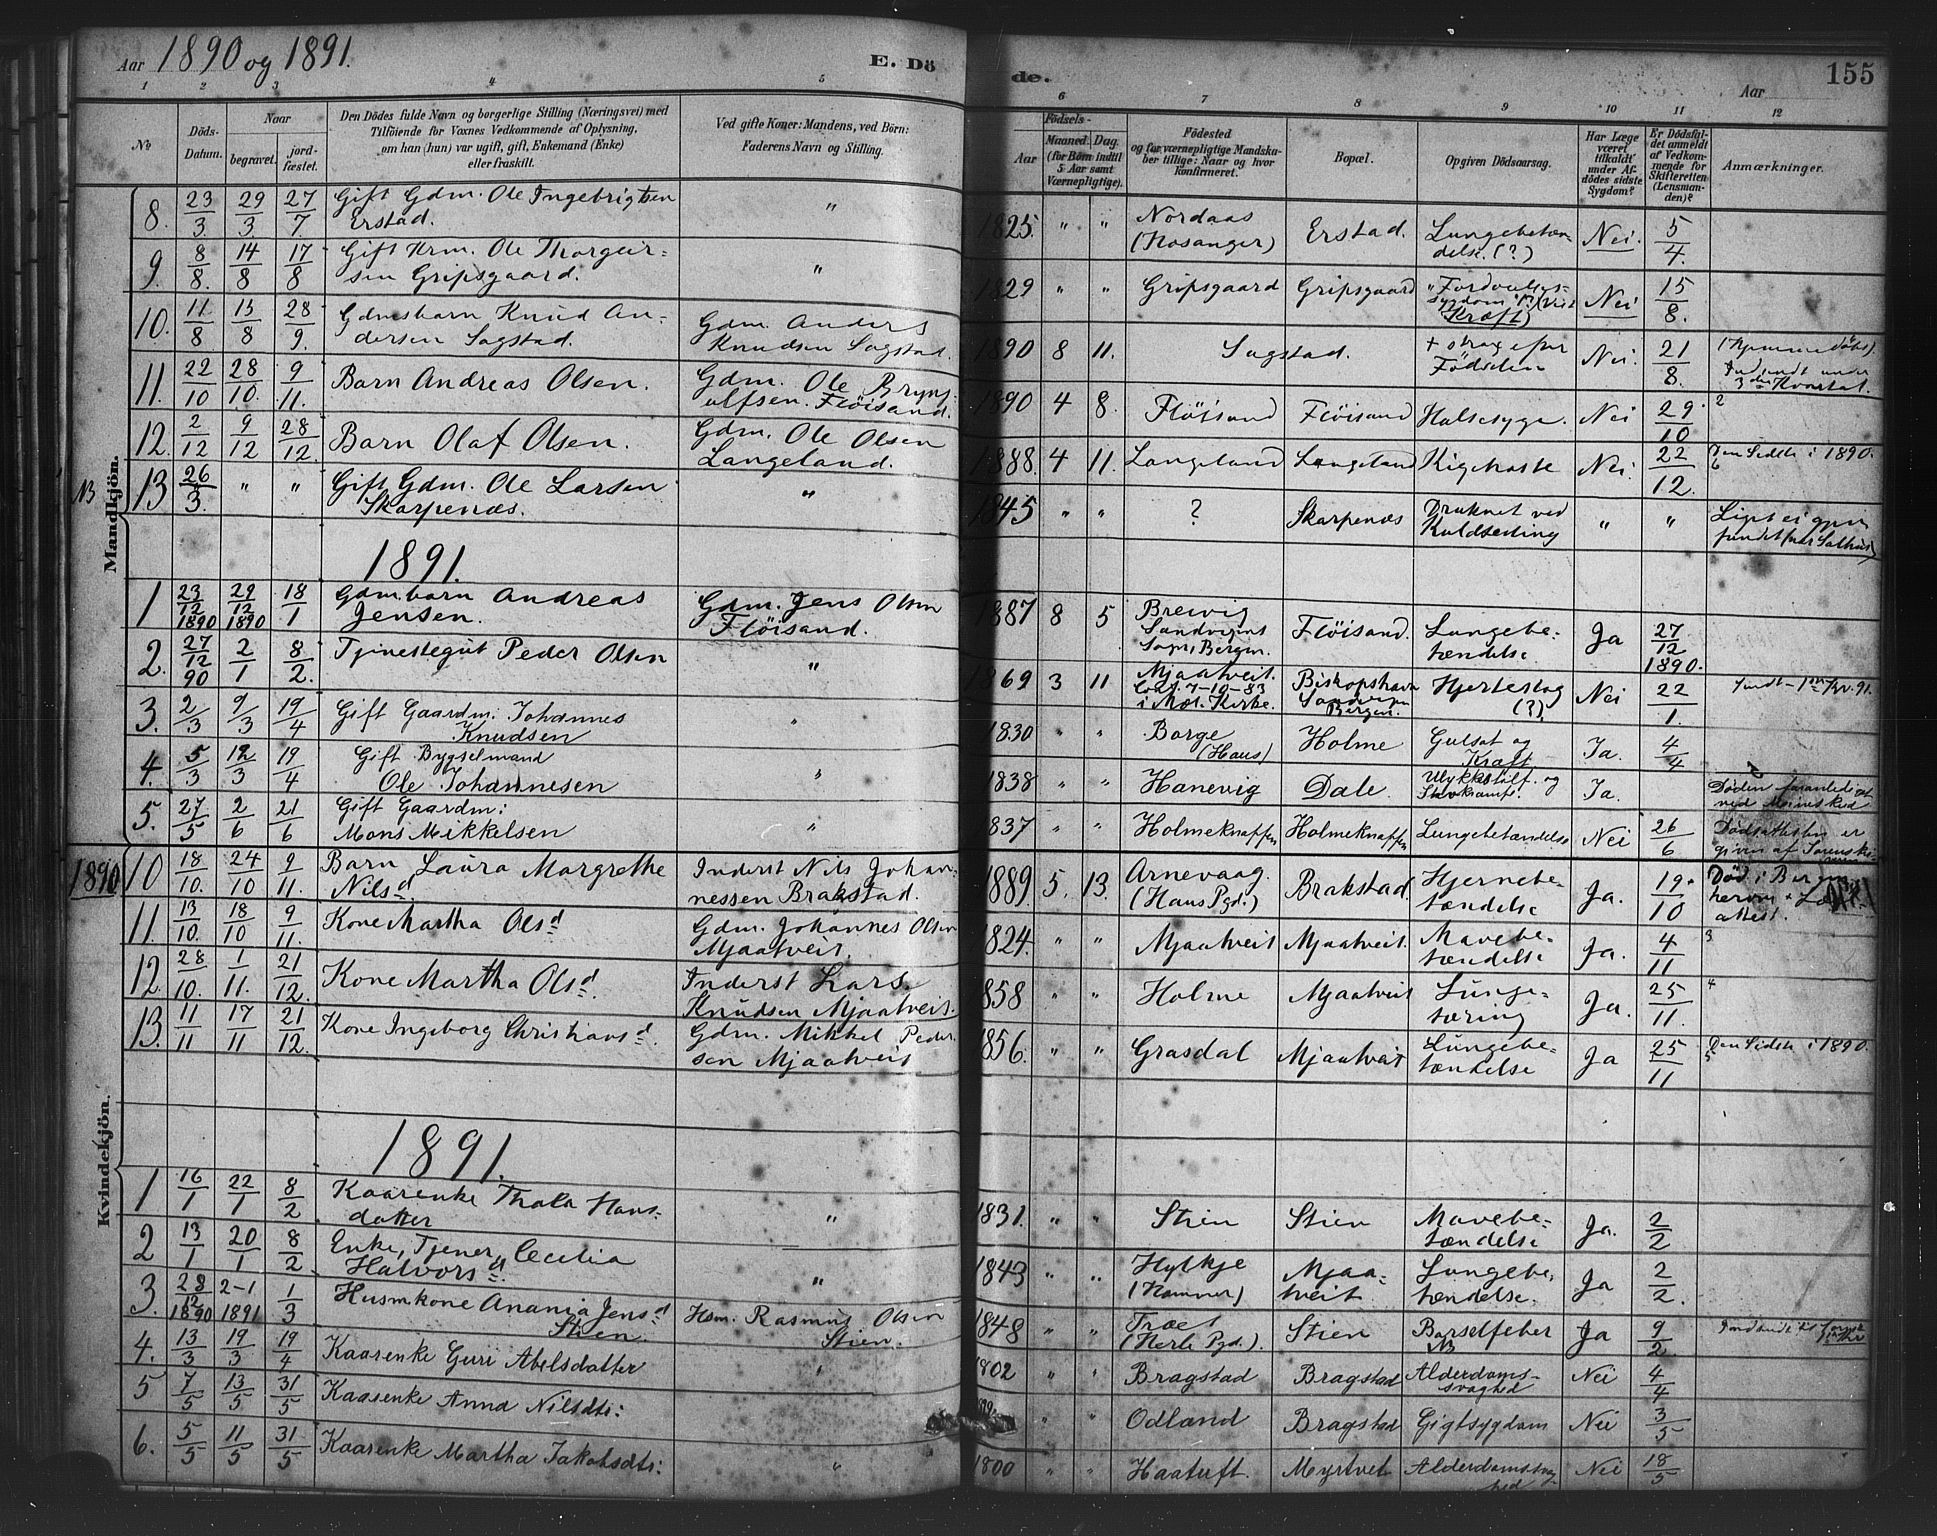 Aar 1890 og 1891.
E. Dö
de.
Aar
155
1 2 3 4 5 6 7 8 9 10 11 12
No
Döds-Datum.
Naar
begravet.
jord-fæstet.
Den Dödes fulde Navn og borgerlige Stilling (Næringsvei) med
Tilföiende for Voxnes Vedkommende af Oplysning,
om han (hun) var ugift, gift, Enkemand (Enke)
eller fraskilt.
Ved gifte Koner: Mandens, ved Börn:
Faderens Navn og Stilling.
Födsels-
Aar
Maaned. Dag.
(for Börn indtil
5 Aar samt
Værnepligtige).
Födested
og for værnepligtige Mandska-
ber tillige: Naar og hvor
konfirmeret.
Bopæl.
Opgiven Dödsaarsag.
Har Læge
været
tilkaldt
under Af-
dödes sidste
Sygdom?
Er Dödsfal-
det anmeldt
af Vedkom-
mende for
Skifteretten
(Lensman-
den)?
Anmærkninger.
Mandkjön.
8. 23/3. 29/3 27/7 Gift Gdm. Ole Ingebrigtsen Erstad. " 1825. " " Nordaas (Hosanger) Erstad. Lungebetæn-delse. (?) Nei. 5/4.
9. 8/8. 14/8 17/8 Gift Krm. Ole Thorgeir-sen Gripsgaard. " 1829 " " Gripsgaard Gripsgaard Sygdom Kræft) Nei 15/8.
10. 11/8 15/8 28/9. Gdmsbarn Knud An-dersen Sagstad. Gdm. Anders Knudsen Sagstad. 1890 8 11. Sagstad. + strax efter Födselen Nei. 21/8. (Hjemmedöbt). 3die Kvartal.
11. 22/10 28/10. 9/11. Barn Andreas Olsen. Gdm. Ole Bryn-ulfsen. Flöisand. 1890 4 8. Flöisand Flöisand Halsesyge. Nei 29/10 2
12. 2/12 9/12 28/12. Barn Olaf Olsen. Gdm. Ole Olsen Langeland. 1888. 4 11. Langeland Langeland Kighoste Nei. 22/12. Den Sidste i 1890. 6
NB 13 26/3. " " Gift Gdm. Ole Larsen Skarpenæs. " 1845 " " ? Skarpenæs Druknet ved Kuldseiling " " Liget ei fundet
1891.
1 23/12 1890 29/12 1890 18/1 Gdm.barn Andreas Jensen. Gdm. Jens Olsen Flöisand. 1887 8 5 Breivig Sandvigens Sogn, Bergen. Flöisand. Lungebe-tændelse Ja 27/12 1890.
2. 27/12 90 2/1 8/2. Tjenestegut Peder Olsen " 1869 3 11 Mjaatveit. Conf. 7-10-83 i Mel. Kirke. Biskopshavn Sandvigen Bergen. Hjerteslag (?) Nei 22/1.
3. 2/3 9/3 19/4 Gift Gaardm. Johannes Knudsen " 1830 " " Borge (Haus) Holme Gulsot og Kræft Ja. 4/4
4. 5/3 12/3 19/4 Gift Bygselmand Ole Johannesen " 1838 " " Hanevig Dale. Ulykkestilf. og Ja. Döden foranlediget
5. 27/5 2/6 21/6 Gift Gaardm: Mons Mikkelsen " 1837 " " Holmeknappen Holmeknappen Lungebetændelse Nei 26/6 Dödsattesten er given af Sorenskri-
1890
10 18/10. 24/10 9/11. Barn Laura Margrethe Nilsd. Inderst Nils Johan-nessen Brakstad. 1889 5. 13. Arnevaag. (Haus Pgd.) Brakstad. Hjernebe-tændelse Ja. 19/10 Död i Bergen herom attest.
11. 13/10. 18/10 9/11. Kone Martha Olsd Gdm. Johannes Olsen Mjaatveit. 1824. " " Mjaatveit Mjaatveit. Mavebe-tændelse Ja. 4/11 3
12. 28/10. 1/11. 21/12. Kone Martha Olsd. Inderst Lars Knudsen Mjaatveit. 1858 " " Holme Mjaatveit Lunge-tæring Ja. 25/11. 4
13. 11/11 17/11 21/12. Kone Ingeborg Christiansd. Gdm. Mikkel Peder-sen Mjaatveit 1856. " " Grasdal Mjaatveit Lungebe-tændelse Ja 25/11 Den Sidste i 1890. 5
Kvindekjön.
1891.
1 16/1 22/1 8/2 Kaarenke Thala Hans-datter " 1831. " " Stien Stien Mavebe-tændelse Ja. 2/2
2 13/1 20/1 8/2 Enke, Tjener, Cecilia Halvorsd. " 1843 " " Hylkje (Hammer) Mjaa-tveit. Lungebe-tændelse. Ja 2/2.
3. 28/12 1890 2-1 1891 1/3 Husmkone Anania Jensd Stien. Hsm. Rasmus Olsen Stien. 1848 " " Træet (Herlö Pgd.). Stien Barselfeber NB Ja 9/2
4. 13/3 19/3 19/4 Kaarenke Guri Abelsdatter " 1802 " " Bragstad Bragstad Alderdoms-svaghed Nei 4/4
5 7/5 13/5 31/5 Kaarenke Anna Nilsdtr: " " Odland Bragstad Gigtsygdom Nei 3/5
6. 5/5 11/5 31/5 Kaarenke Martha Jakobsdtr: " 1800 " " Haatuft. Myrtvet Alderdomssvag-hed Nei 18/5